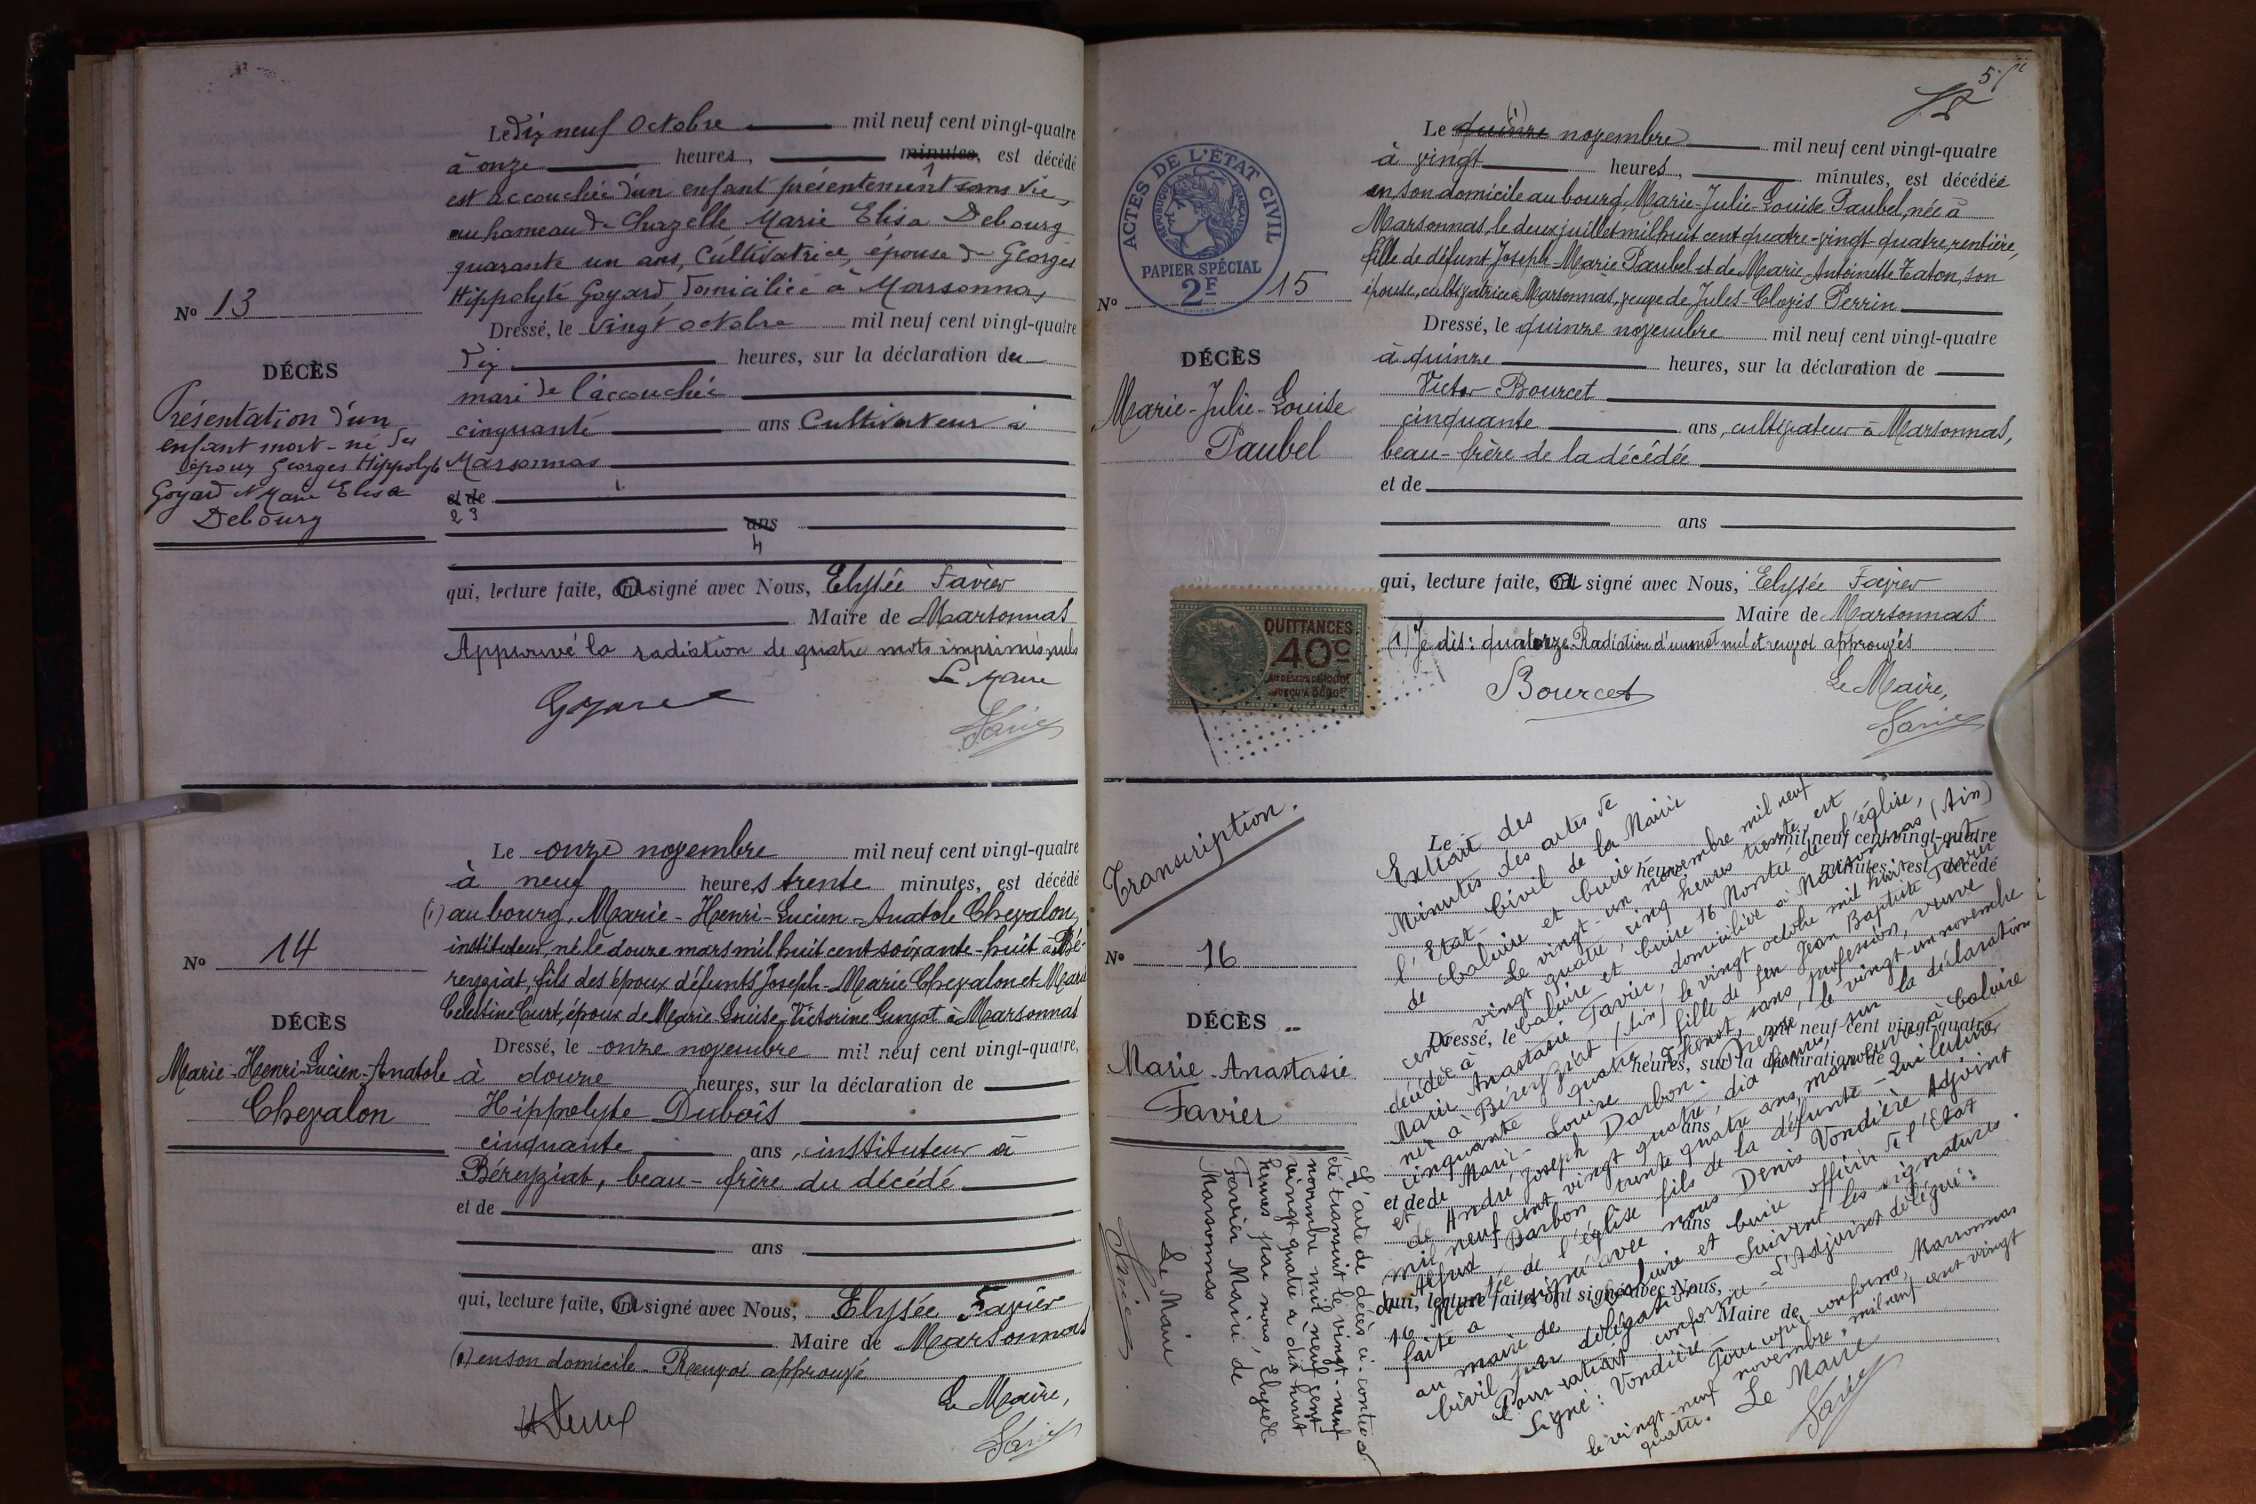 Le Dix neuf Octobre mil neuf cent vingt-quatre
à onze heures, minutes, est décédé
est accouchée d'un enfant présentement sans vie
au hameau de Chazelle Marie Elisa Debourg
quarante un ans, Cultivatrice, épouse de Georges
Hippolyte Goyard Domiciliée à Marsonnas
Dressé, le Vingt octobre mil neuf cent vingt-quatre
Dix heures, sur la déclaration du
mari de l'accouchée
cinquante ans Cultivateur à
Marsonnas
et de
2 3
ans
4
qui, lecture faite, a signé avec Nous, Elysée Favier
Maire de Marsonnas
Approuvé la radiation de quatre mots imprimés nuls
Le Maire
Goyard
Favier
No 13
DÉCÈS
Présentation d'un
enfant mort-né des
époux Georges Hippolyte
Goyard et Marie Elisa
Debourg
Le onze novembre mil neuf cent vingt-quatre
à neuf heures trente minutes, est décédé
(1) au bourg, Marie-Henri-Lucien-Anatole Chevalon,
instituteur, né le douze mars mil huit cent soixante-huit à Bé-
reyziat, fils des époux défunts Joseph-Marie Chevalon et Marie
Célestine Curt, époux de Marie-Louise-Victorine Guyot à Marsonnas
Dressé, le onze novembre mil neuf cent vingt-quatre,
à douze heures, sur la déclaration de
Hippolyte Dubois
cinquante ans, instituteur à
Béreyziat, beau-frère du décédé
et de
ans
qui, lecture faite, a signé avec Nous, Elysée Favier
Maire de Marsonnas
(1) en son domicile - Renvoi approuvé
Le Maire,
Favier
No 14
DÉCÈS
Marie-Henri-Lucien-Anatole
Chevalon
5
Le quinze (1) novembre mil neuf cent vingt-quatre
à vingt heures, minutes, est décédée
en son domicile au bourg, Marie-Julie-Louise Paubel, née à
Marsonnas, le deux juillet mil huit cent quatre-vingt-quatre, rentière,
fille de défunt Joseph-Marie Paubel et de Marie-Antoinette Taton, son
épouse, cultivatrice à Marsonnas, veuve de Jules-Clovis Perrin
Dressé, le quinze novembre mil neuf cent vingt-quatre
à quinze heures, sur la déclaration de
Victor Bourcet
cinquante ans, cultivateur à Marsonnas,
beau-frère de la décédée
et de
ans
qui, lecture faite, a signé avec Nous, Elysée Favier
Maire de Marsonnas
(1) Je dis: quatorze. Radiation d'un mot nul et renvoi approuvés
Bourcet
Le Maire,
Favier
ACTES DE L'ÉTAT CIVIL
RÉPUBLIQUE FRANÇAISE
PAPIER SPÉCIAL
2F
No 15
DÉCÈS
Marie-Julie-Louise
Paubel
QUITTANCES
40c
Transcription.
No 16
DÉCÈS
Marie-Anastasie
Favier
L'acte de décès ci-contre a
été transcrit le vingt-neuf
novembre mil neuf cent
vingt quatre à dix huit
heures par nous, Elysée
Favier Maire de
Marsonnas
Le Maire
Favier
Le mil neuf cent vingt-quatre
heures minutes, est décédé
Dressé, le mil neuf cent vingt-quatre
heures, sur la déclaration de
ans
et de
ans
qui, lecture faite, ont signé avec Nous,
Maire de
Extrait des
Minutes des actes de
l'Etat-Civil de la Mairie
de Caluire et Cuire
Le vingt-un novembre mil neuf
cent vingt quatre, cinq heures trente, est
décédée à Caluire et Cuire 16 Montée de l'église,
Marie Anastasie Favier, domiciliée à Marsonnas (Ain)
née à Béreyziat (Ain) le vingt octobre mil huit cent
cinquante quatre, fille de feu Jean Baptiste Favier
et de Marie-Louise Thonot, sans profession, veuve
de André Joseph Darbon. Dressé le vingt-un novembre
mil neuf cent vingt quatre, dix heures, sur la déclaration
de Alfred Darbon trente quatre ans, manoeuvre à Caluire
16 Montée de l'église fils de la défunte - Qui lecture
faite a signé avec nous Denis Vondière Adjoint
au maire de Caluire et Cuire officier de l'Etat
Civil par délégation. Suivent les signatures.
Pour extrait conforme - L'Adjoint délégué:
Signé: Vondière
Pour copie conforme, Marsonnas
le vingt-neuf novembre mil neuf cent vingt
quatre.
Le Maire
Favier